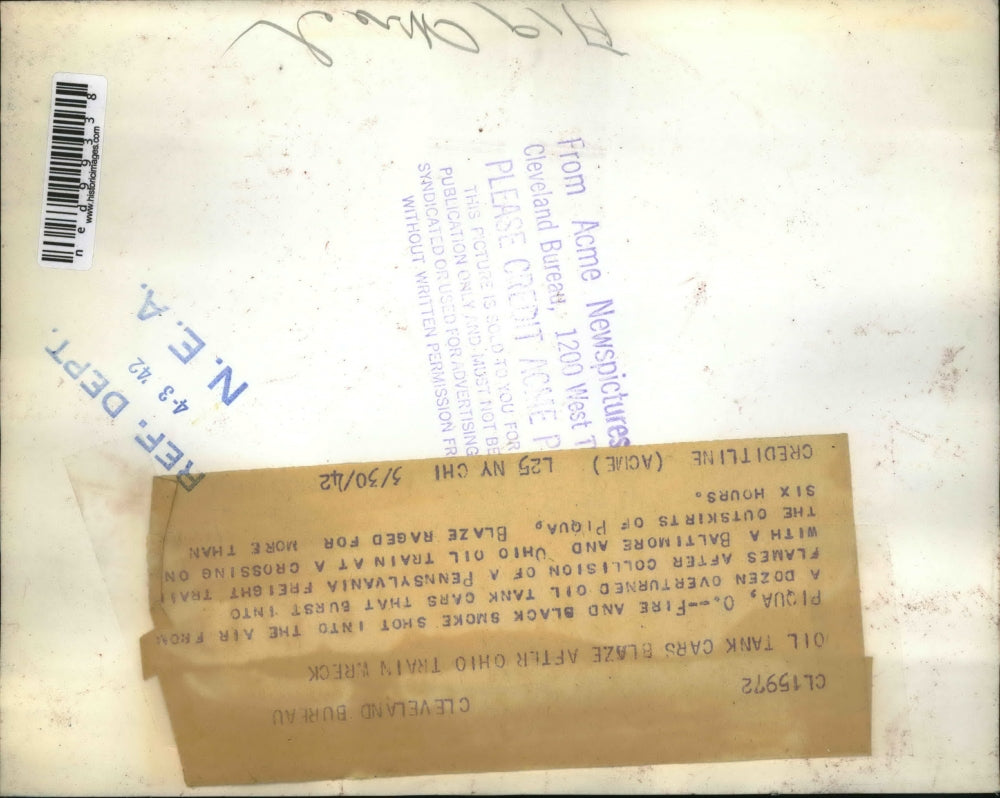 CL15972 CLEVELAND BUREAU
OIL TANK CARS BLAZE AFTER OHIO TRAIN WRECK
PIQUA, O.--FIRE AND BLACK SMOKE SHOT INTO THE AIR FROM
A DOZEN OVERTURNED OIL TANK CARS THAT BURST INTO
FLAMES AFTER COLLISION OF A PENNSYLVANIA FREIGHT TRAIN
WITH A BALTIMORE AND OHIO OIL TRAIN AT A CROSSING ON
THE OUTSKIRTS OF PIQUA. BLAZE RAGED FOR MORE THAN
SIX HOURS.
CREDITLINE (ACME) L25 NY CHI 3/30/42
From Acme Newspictures
Cleveland Bureau, 1200 West T
PLEASE CREDIT ACME P
THIS PICTURE IS SOLD TO YOU FOR
PUBLICATION ONLY AND MUST NOT BE
SYNDICATED OR USED FOR ADVERTISING
WITHOUT WRITTEN PERMISSION FR
REF. DEPT.
4-3 '42
N. E. A.
www.historicimages.com
ned99338